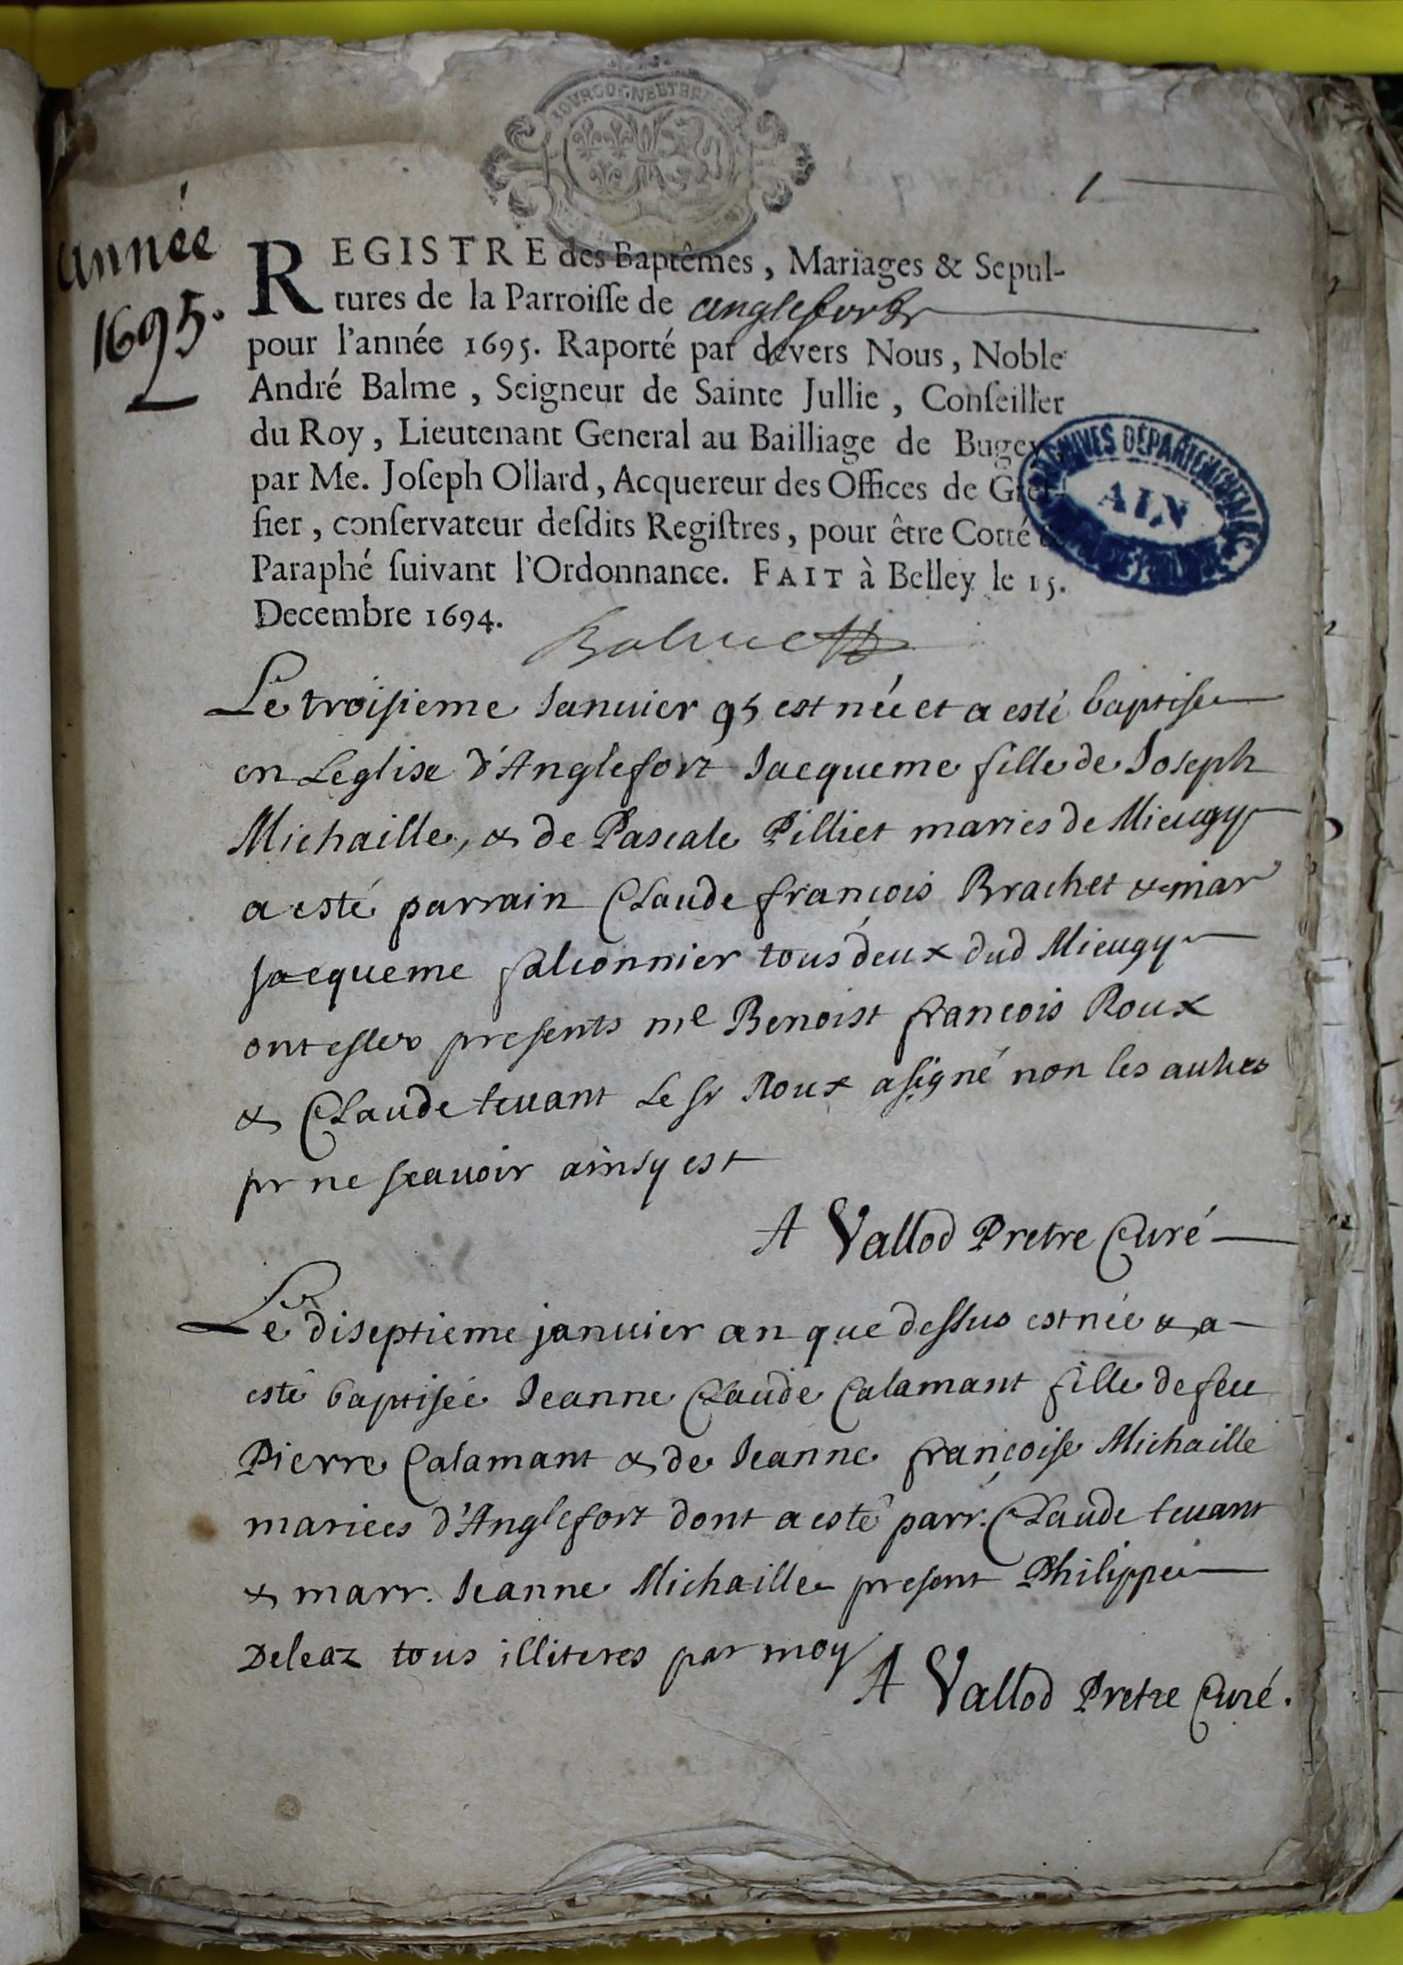 BOURGOGNE ET BRE
1
année
1695.
REGISTRE des Baptêmes, Mariages & Sepul-
tures de la Parroiſſe de anglefort
pour l'année 1695. Raporté par devers Nous, Noble
André Balme, Seigneur de Sainte Jullie, Conſeiller
du Roy, Lieutenant General au Bailliage de Bugey
par Me. Joſeph Ollard, Acquereur des Offices de Gref-
fier, conſervateur deſdits Regiſtres, pour être Cotté &
Paraphé ſuivant l'Ordonnance. FAIT à Belley le 15.
Decembre 1694.
ARCHIVES DÉPARTEMENTALES
AIN
Balme
Le troisieme Januier 95 est née et a esté baptisée
en Leglise d'Anglefort Jacqueme fille de Joseph
Michaille, & de Pascale Pilliet maries de Mieugy
a esté parrain Claude françois Brachet & mar
Jacqueme falconnier tous deux dud Mieugy
ont estes presents me Benoist francois Roux
& Claude teuant Le sr Roux a signé non les autres
pr ne scauoir ainsy est
A Vallod Pretre Curé
Le diseptieme januier an que dessus est née & a
esté baptisée Jeanne Claude Calamant fille de feu
Pierre Calamant & de Jeanne françoise Michaille
mariees d'Anglefort dont a esté parr. Claude teuant
& marr. Jeanne Michaille present Philippe
Deleaz tous illiteres par moy
A Vallod Pretre Curé.